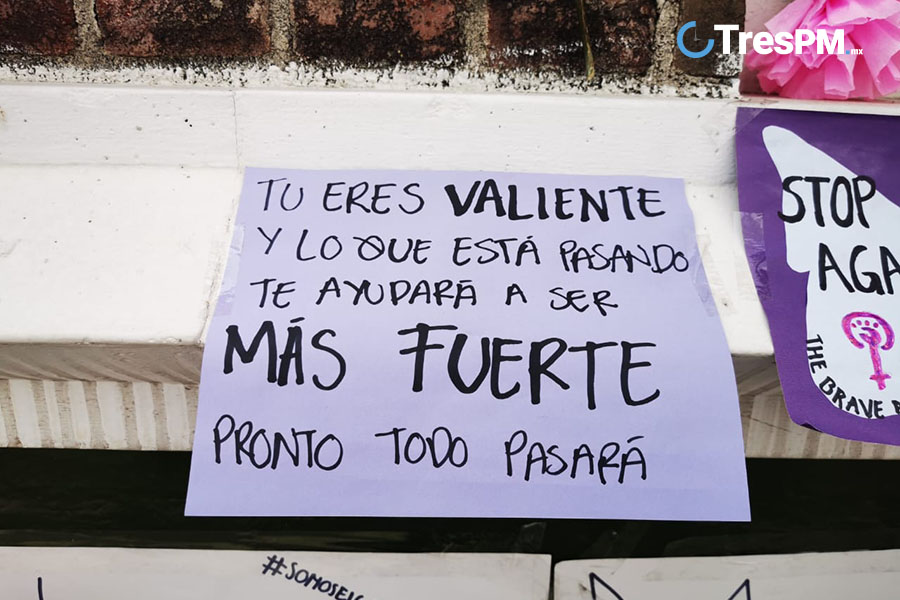 TresPM.mx
TU ERES VALIENTE
Y LO QUE ESTÁ PASANDO
TE AYUDARÁ A SER
MÁS FUERTE
PRONTO TODO PASARÁ
STOP
AGA
THE BRAVE